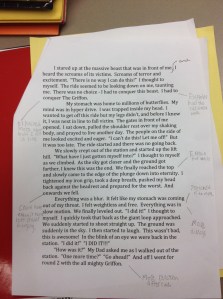 I stared up at the massive beast that was in front of me. I
heard the screams of its victims. Screams of terror and
excitement. "There is no way I can do this!" I thought to
myself. The ride seemed to be looking down on me, taunting
me. There was no choice - I had to conquer this beast. I had to
conquer The Griffon.
My stomach was home to millions of butterflies. My
mind was in hyper drive. I was trapped inside my head. I
wanted to get off this ride but my legs didn't, and before I knew
it, I was next in line to fall victim. The gates in front of me
opened. I sat down, pulled the shoulder rest over my shaking
body, and prayed to live another day. The people on the ride of
me looked excited and eager. "I can't do this! Let me off!" But
it was too late. The ride started and there was no going back.
We slowly crept out of the station and started up the lift
hill. "What have I just gotten myself into?" I thought to myself
as we climbed. As the sky got closer and the ground got
further, I knew this was the end. We finally reached the top
and slowly came to the edge of the plunge down into eternity. I
tightened my iron grip, took a deep breath, pushed my head
back against the headrest and prepared for the worst. And
downwards we fell.
Everything was a blur. It felt like my stomach was coming
out of my throat. I felt weightless and free. Everything was in
slow motion. We finally leveled out. "I did it!" I thought to
myself. I quickly took that back as the giant loop approached.
We suddenly started to shoot straight up. The ground was
suddenly in the sky. I then started to laugh. This wasn't bad,
this is awesome! In the blink of an eye we were back in the
station. "I did it!" "I DID IT!!!"
"How was it?" My Dad asked me as I walked out of the
station. "One more time?" "Go ahead!" And off I went for
round 2 with the all mighty Griffon.